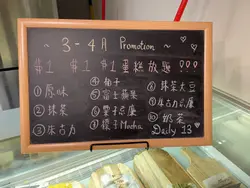 ~ 3 - 4 月 Promotion ~
#1 #1 $1 蛋糕放題 !!!
① 原味
② 抹茶
③ 朱古力
④ 柚子
⑤ 富士蘋果
⑥ 栗子忌廉
⑦ 榛子Mocha
⑧ 抹茶大豆
⑨ 朱古力忌廉
⑩ 奶茶
Daily 13